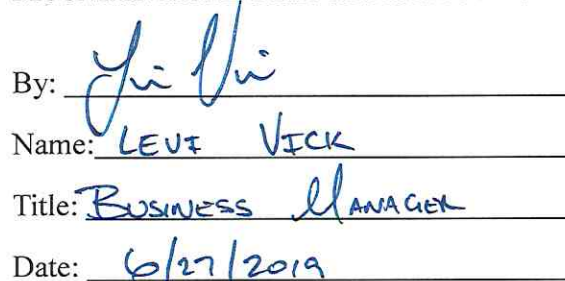 By:
Name: LEVI VICK
Title: BUSINESS MANAGER
Date: 6/27/2019